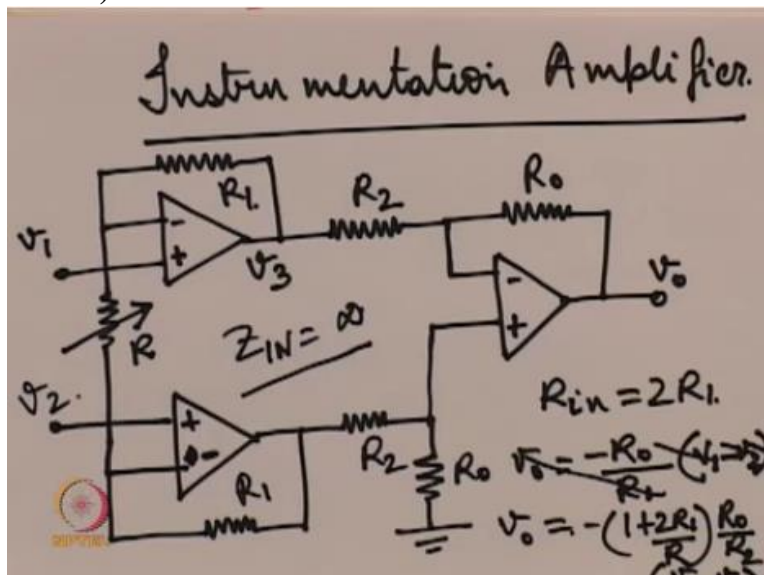 Instrumentation Amplifier.
R1.
R2
R0
v1
- +
v3
v0
- +
R
ZIN = ∞
v2.
+ -
R2
R0
R1
Rin = 2R1.
v0 = -R0
v0 = -(1+2R1/R) R0/R2
NPTEL